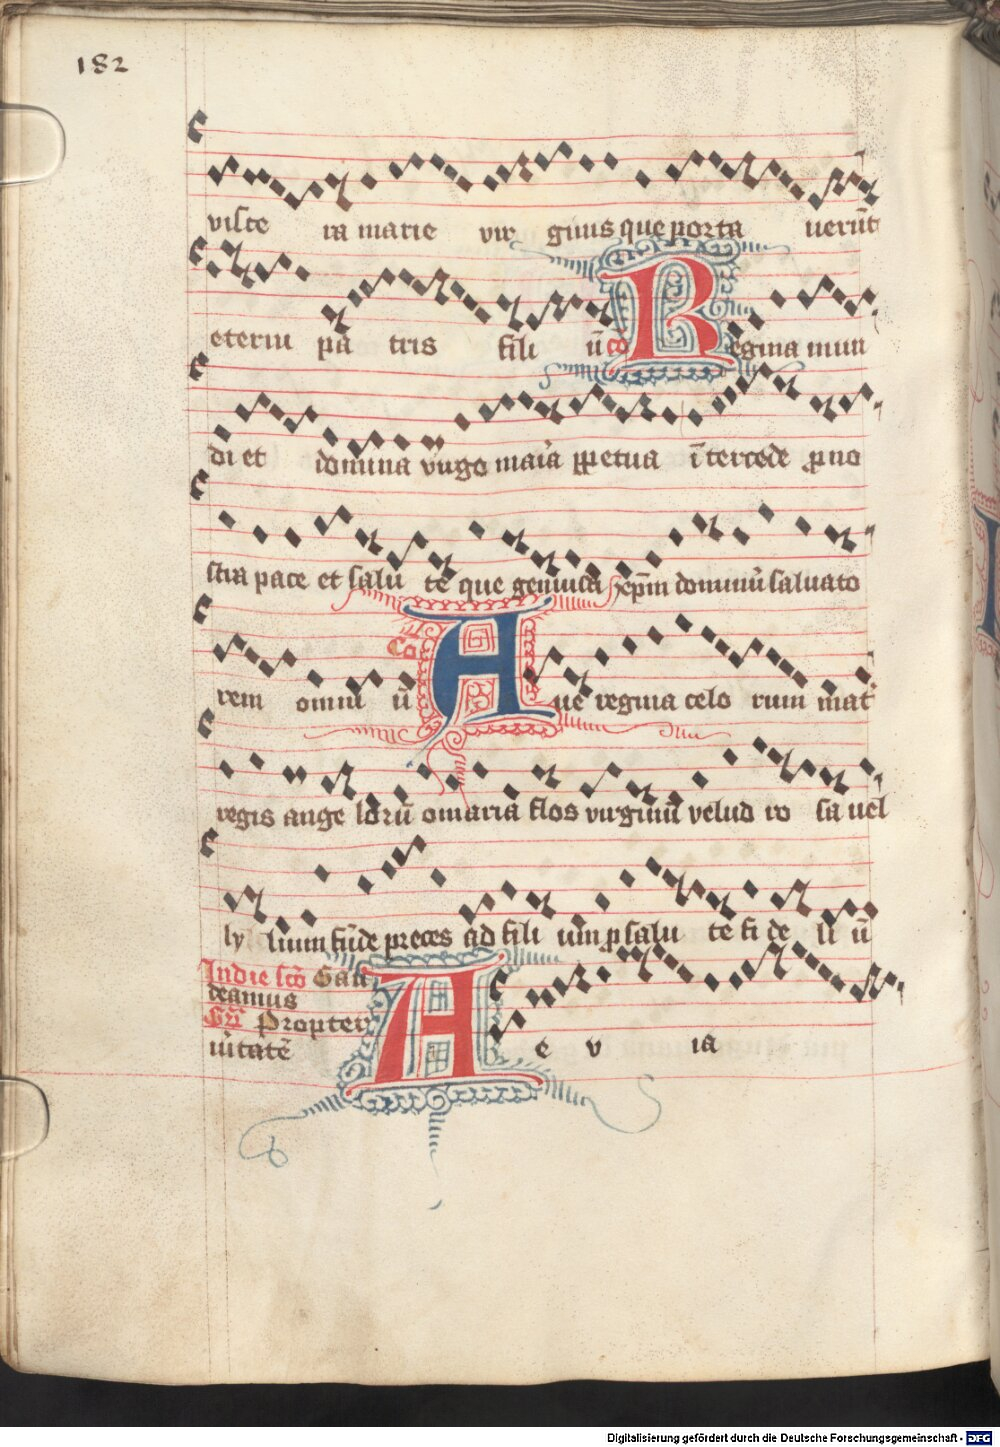 182
viste ra marie vir ginis que porta uerūt
eterni pa tris fili ū co Regina mun
di et domina virgo maria ꝑpetua ītercede pro no
stra pace et salu te que genuisti xp̄m dominū saluato
rem omni ū Co Aue regina celo rum mat̉
regis ange lorū o maria flos virginū velud ro sa uel
ly lium fūde preces ad fili um ꝓ salu te fi de li ū
In die sc̄o Gau
deamus
Gr̄ Propter
uitatē A e v ia
Digitalisierung gefördert durch die Deutsche Forschungsgemeinschaft - DFG